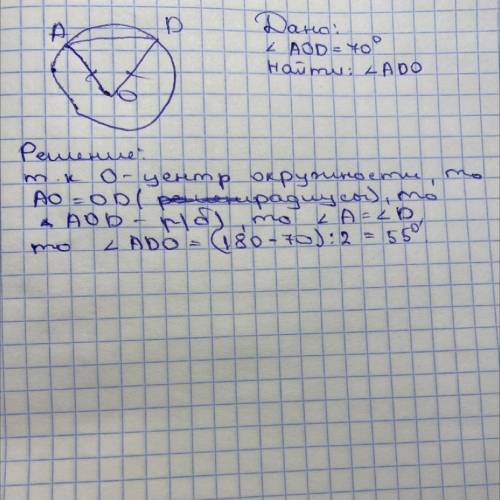 A D
O
Дано:
∠AOD=70°
Найти: ∠ADO
Решение:
т.к О-центр окружности, то
AO=OD(радиусы), то
AOD - р/б, то ∠A=∠D,
то ∠ADO=(180-70):2=55°